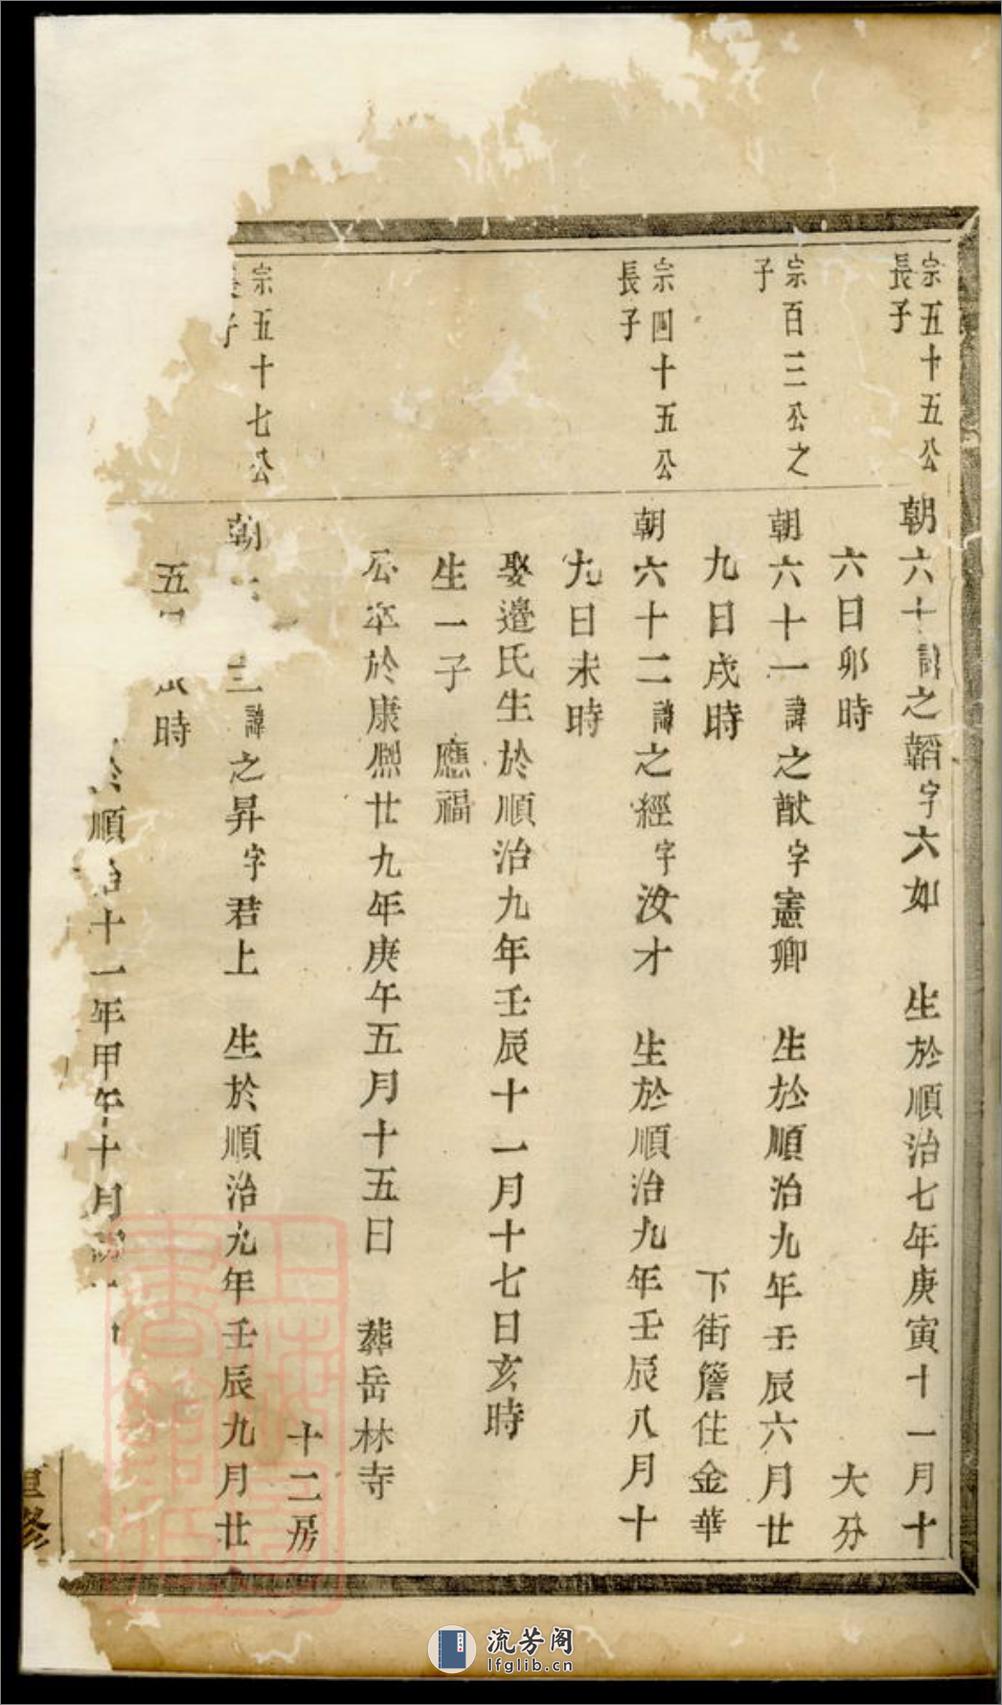 宗五十五公
長子
朝六十諱之韜字六如 生於順治七年庚寅十一月十
六日卯時 大分
宗百三公之
子
朝六十一諱之猷字憲卿 生於順治九年壬辰六月廿
九日戌時 下街簷住金華
宗四十五公
長子
朝六十二諱之經字汝才 生於順治九年壬辰八月十
九日未時
娶邊氏生於順治九年壬辰十一月十七日亥時
生一子 應福
公卒於康熙廿九年庚午五月十五日 葬岳林寺
十二房
宗五十七公
長子
朝 三諱之昇字君上 生於順治九年壬辰九月廿
五 時
於順治十一年甲午十月
重修
流芳阁
lfglib.cn